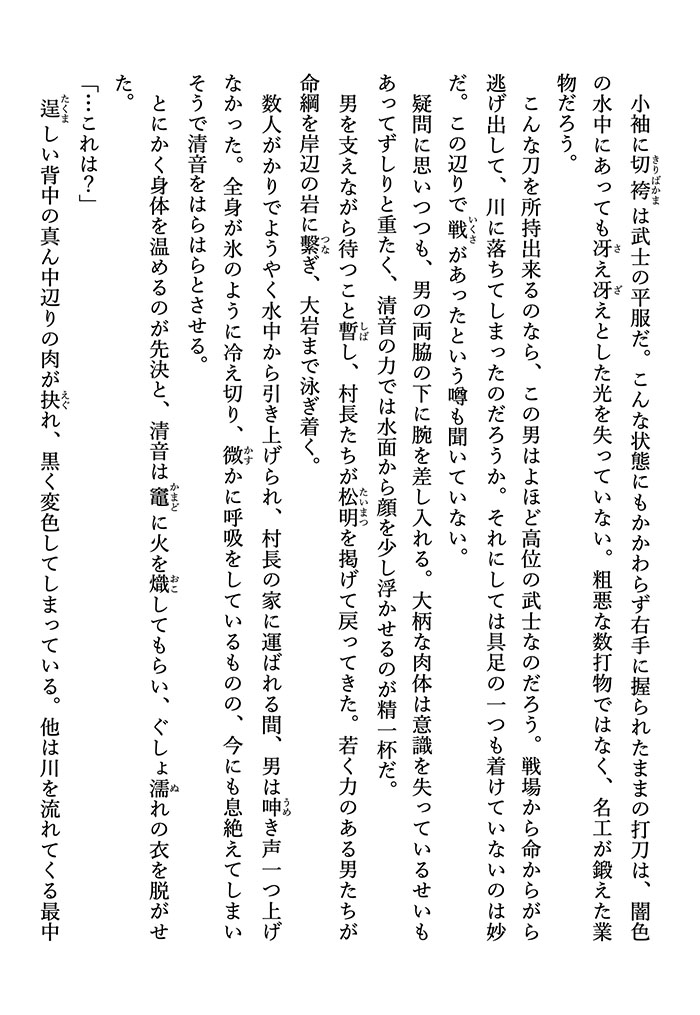 小袖に切袴は武士の平服だ。こんな状態にもかかわらず右手に握られたままの打刀は、闇色
の水中にあっても冴え冴えとした光を失っていない。粗悪な数打物ではなく、名工が鍛えた業
物だろう。
　こんな刀を所持出来るのなら、この男はよほど高位の武士なのだろう。戦場から命からがら
逃げ出して、川に落ちてしまったのだろうか。それにしては具足の一つも着けていないのは妙
だ。この辺りで戦があったという噂も聞いていない。
　疑問に思いつつも、男の両脇の下に腕を差し入れる。大柄な肉体は意識を失っているせいも
あってずしりと重たく、清音の力では水面から顔を少し浮かせるのが精一杯だ。
　男を支えながら待つこと暫し、村長たちが松明を掲げて戻ってきた。若く力のある男たちが
命綱を岸辺の岩に繋ぎ、大岩まで泳ぎ着く。
　数人がかりでようやく水中から引き上げられ、村長の家に運ばれる間、男は呻き声一つ上げ
なかった。全身が氷のように冷え切り、微かに呼吸をしているものの、今にも息絶えてしまい
そうで清音をはらはらとさせる。
　とにかく身体を温めるのが先決と、清音は竈に火を熾してもらい、ぐしょ濡れの衣を脱がせ
た。
「…これは？」
　逞しい背中の真ん中辺りの肉が抉れ、黒く変色してしまっている。他は川を流れてくる最中